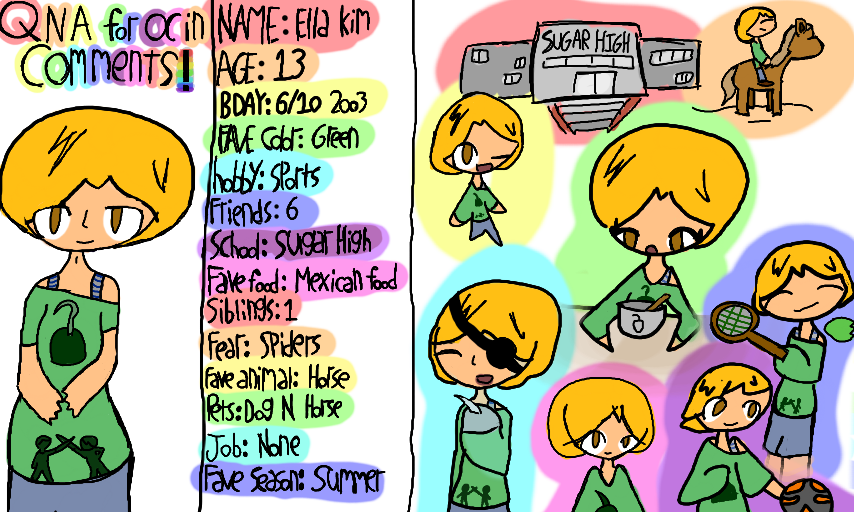 QNA for OC in
Comments!
NAME: Ella Kim
AGE: 13
BDAY: 6/10 2003
FAVE Color: Green
hobby: Sports
Friends: 6
School: Sugar High
Fave food: Mexican food
Siblings: 1
Fear: Spiders
Fave animal: Horse
Pets: Dog N Horse
Job: None
Fave Season: Summer
SUGAR HIGH